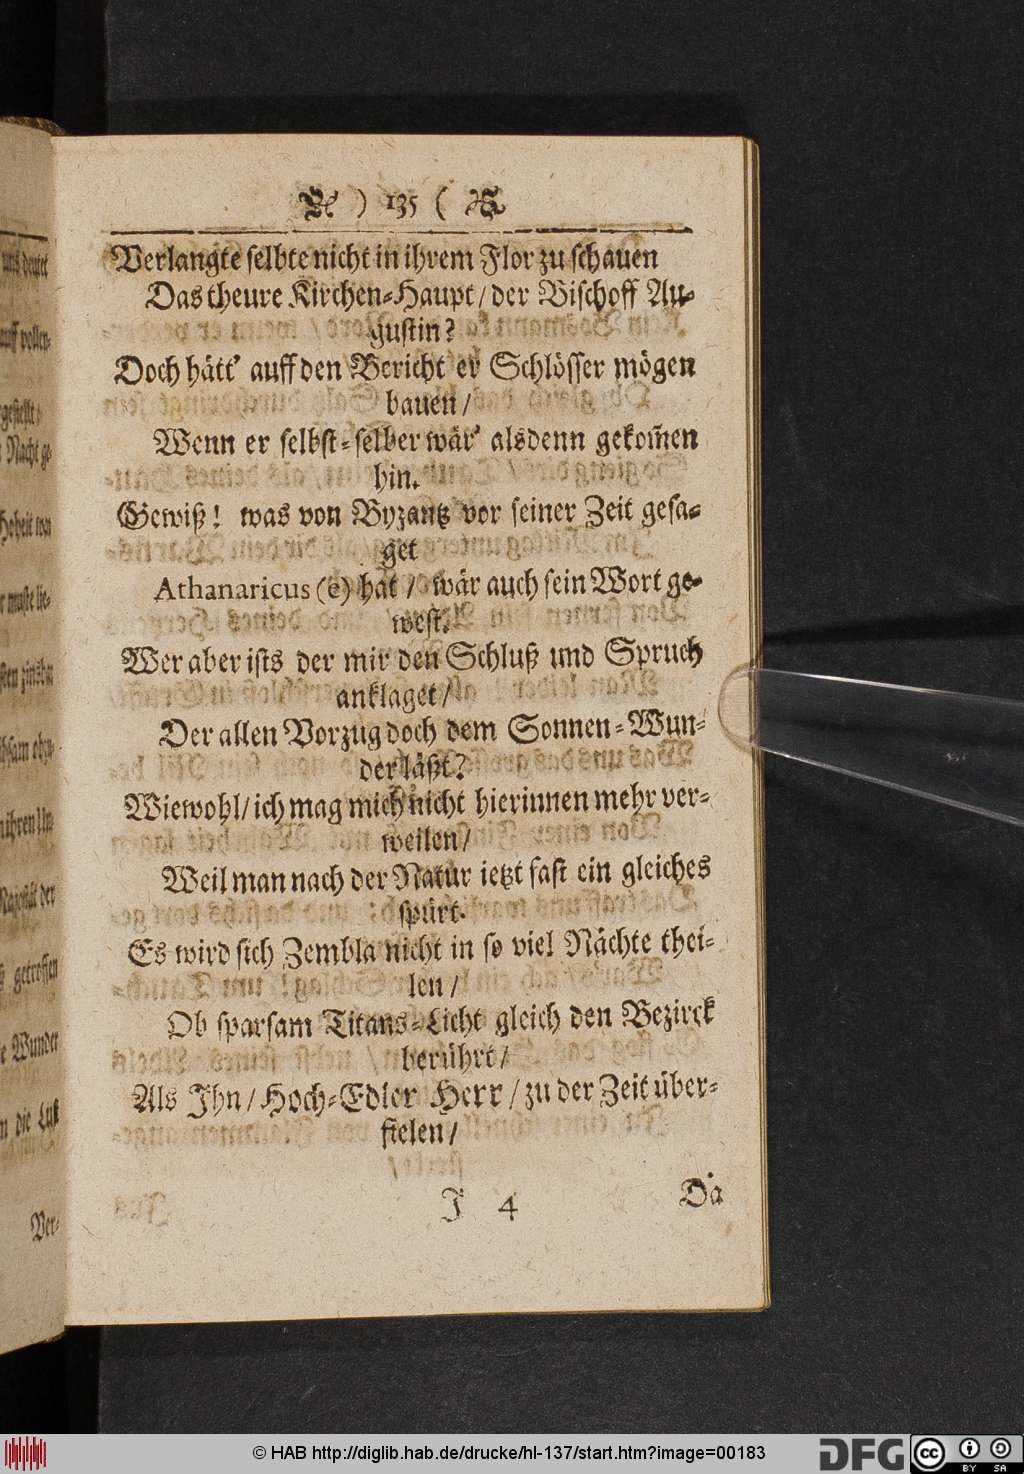 ) 135 (
Verlangte selbte nicht in ihrem Flor zu schauen
Das theure Kirchen-Haupt / der Bischoff Au-
gustin?
Doch hätt' auff den Bericht er Schlösser mögen
bauen /
Wenn er selbst-selber wär' alsdenn gekom̃en
hin.
Gewiß! was von Byzantz vor seiner Zeit gesa-
get
Athanaricus (e) hat / wär auch sein Wort ge-
west.
Wer aber ists der mir den Schluß und Spruch
anklaget /
Der allen Vorzug doch dem Sonnen-Wun-
der läßt?
Wiewohl / ich mag mich nicht hierinnen mehr ver-
weilen /
Weil man nach der Natur ietzt fast ein gleiches
spürt.
Es wird sich Zembla nicht in so viel Nächte thei-
len /
Ob sparsam Titans-Licht gleich den Bezirck
berührt /
Als Jhn / Hoch-Edler Herr / zu der Zeit über-
fielen /
J 4
Da
uns deutet
auff vollen-
gestellt /
Nacht ge-
Hoheit
muste lie-
getroffen
Wunder
die Lust
Ver-
© HAB http://diglib.hab.de/drucke/hl-137/start.htm?image=00183
DFG
cc
BY SA